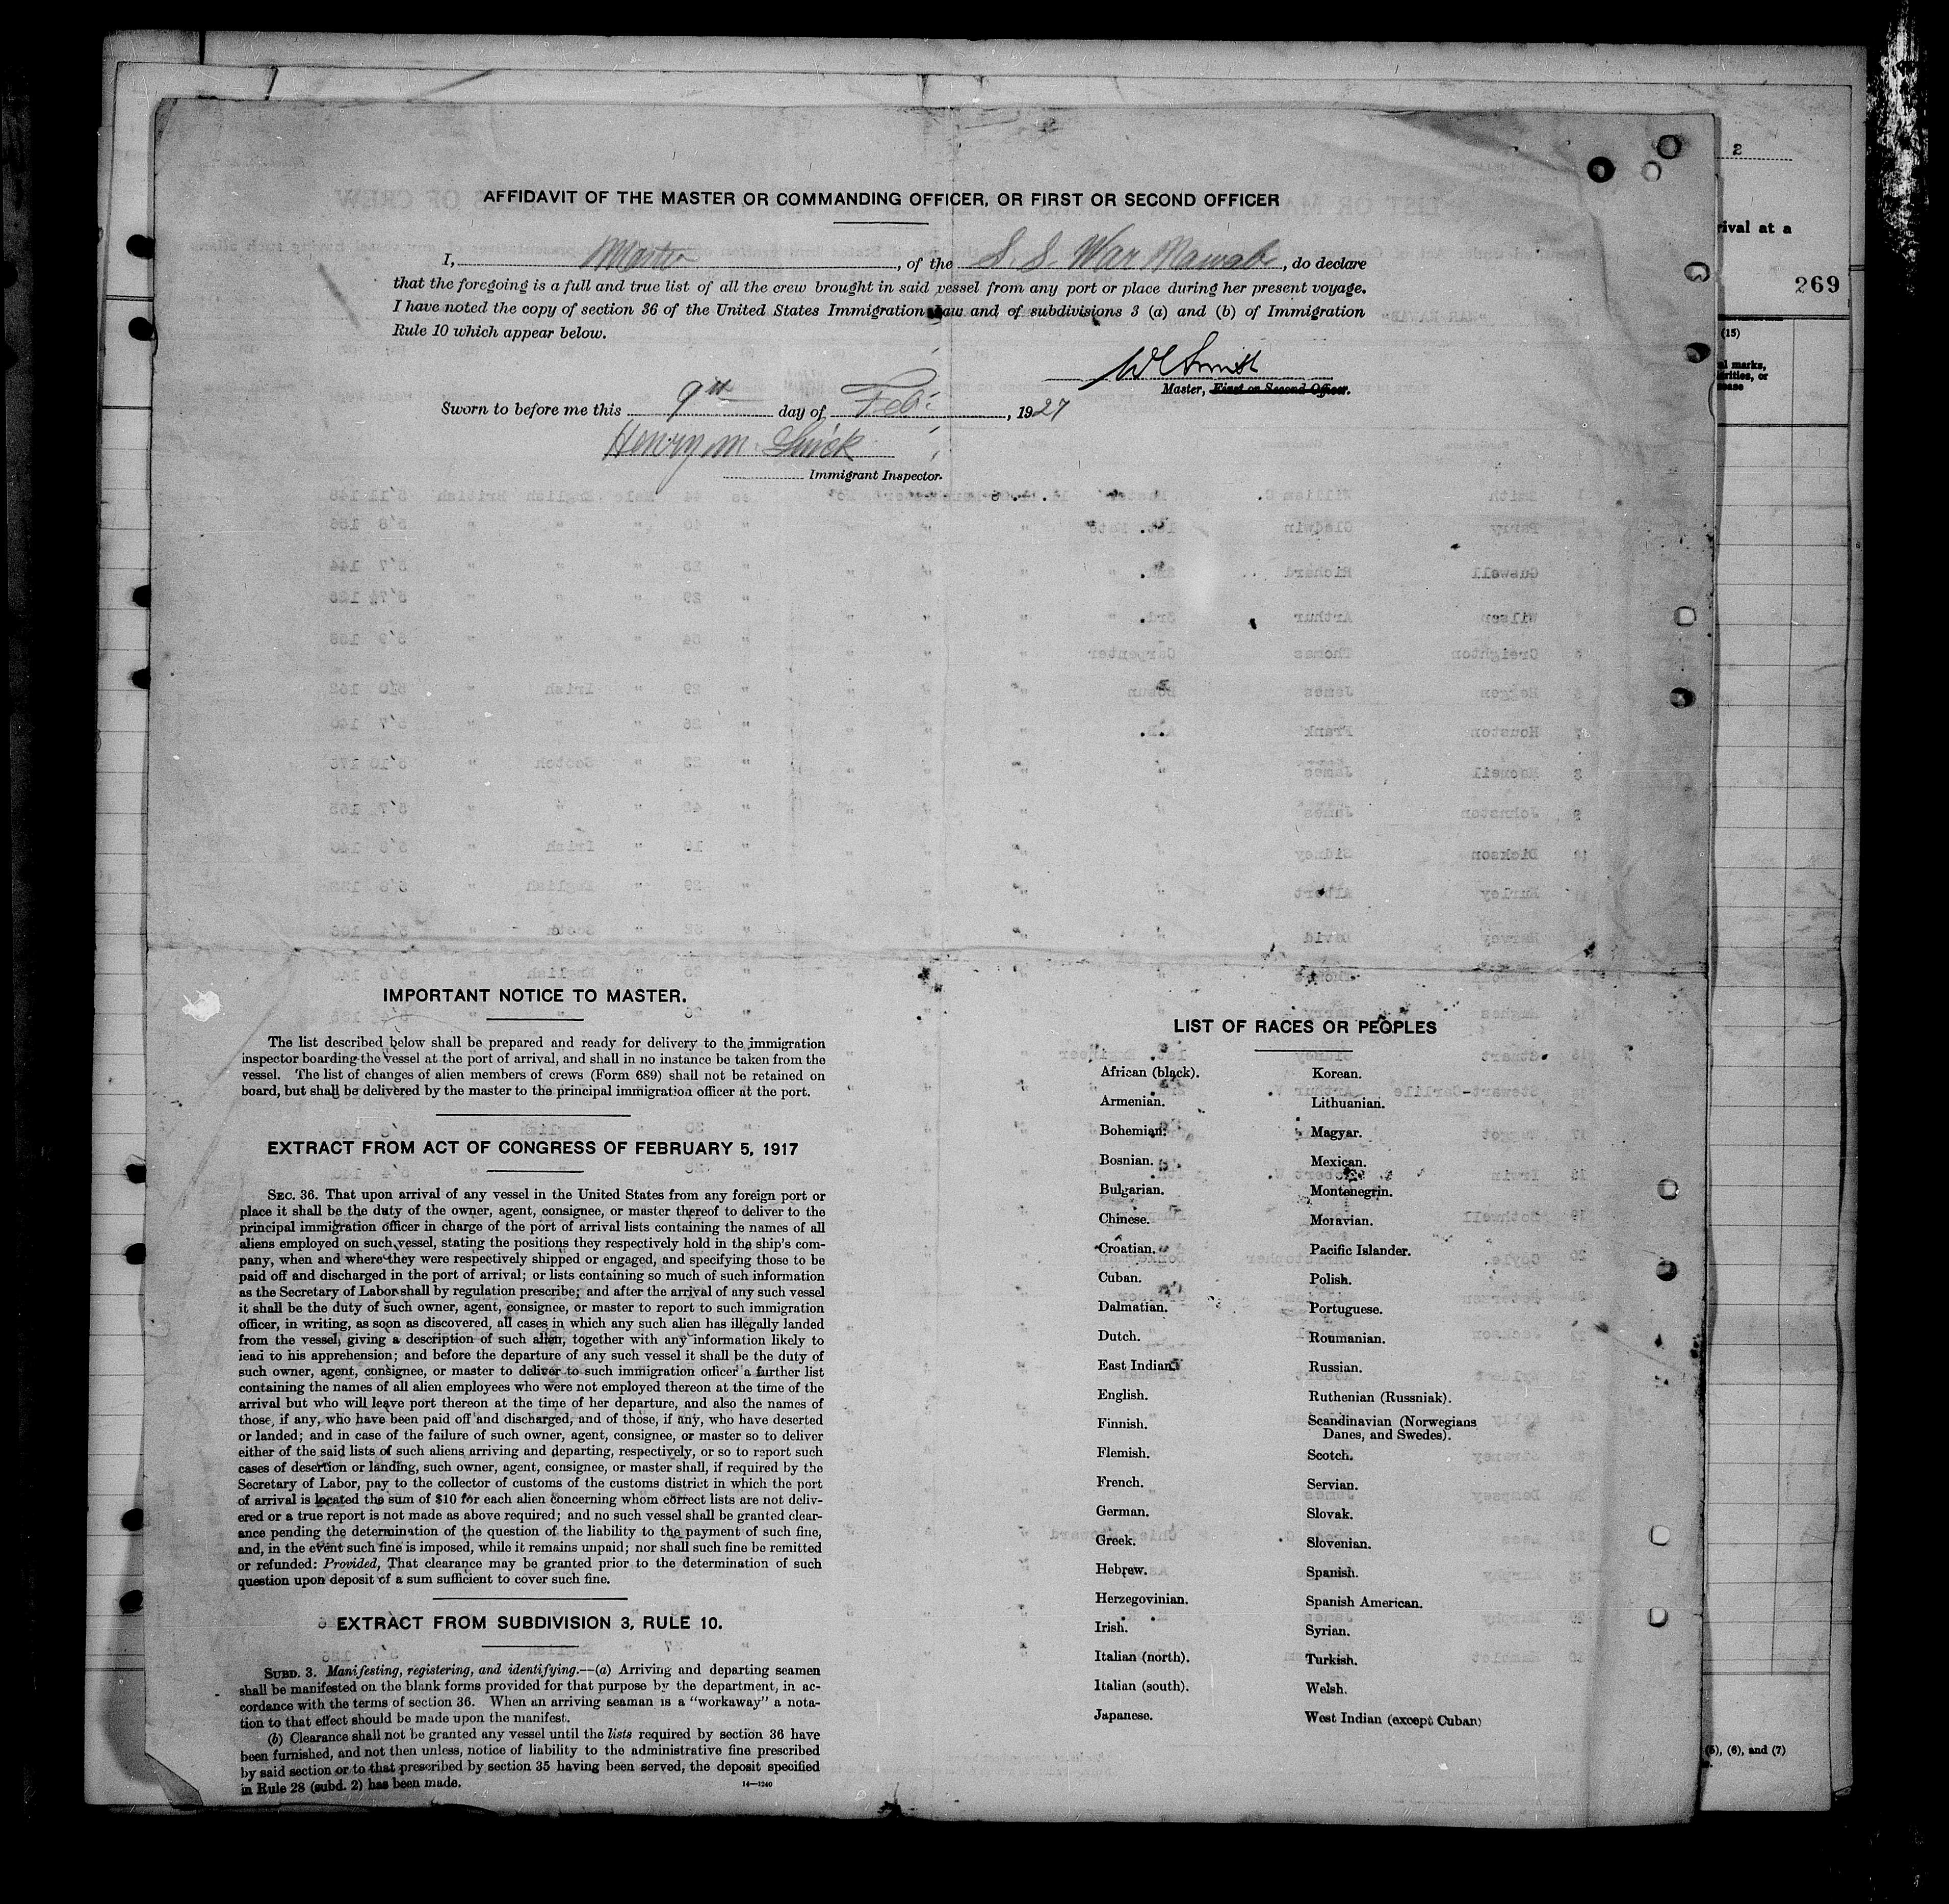 AFFIDAVIT OF THE MASTER OR COMMANDING OFFICER, OR FIRST OR SECOND OFFICER
I, Master, of the S. S. War Nawab, do declare
that the foregoing is a full and true list of all the crew brought in said vessel from any port or place during her present voyage.
I have noted the copy of section 36 of the United States Immigration Law and of subdivisions 3 (a) and (b) of Immigration
Rule 10 which appear below.
W C Smith
Master, First or Second Officer.
Sworn to before me this 9th day of Feb:, 1927
Henry M.
Immigrant Inspector.
IMPORTANT NOTICE TO MASTER.
The list described below shall be prepared and ready for delivery to the immigration
inspector boarding the vessel at the port of arrival, and shall in no instance be taken from the
vessel. The list of changes of alien members of crews (Form 689) shall not be retained on
board, but shall be delivered by the master to the principal immigration officer at the port.
EXTRACT FROM ACT OF CONGRESS OF FEBRUARY 5, 1917
SEC. 36. That upon arrival of any vessel in the United States from any foreign port or
place it shall be the duty of the owner, agent, consignee, or master thereof to deliver to the
principal immigration officer in charge of the port of arrival lists containing the names of all
aliens employed on such vessel, stating the positions they respectively hold in the ship's com-
pany, when and where they were respectively shipped or engaged, and specifying those to be
paid off and discharged in the port of arrival; or lists containing so much of such information
as the Secretary of Labor shall by regulation prescribe; and after the arrival of any such vessel
it shall be the duty of such owner, agent, consignee, or master to report to such immigration
officer, in writing, as soon as discovered, all cases in which any such alien has illegally landed
from the vessel, giving a description of such alien, together with any information likely to
lead to his apprehension; and before the departure of any such vessel it shall be the duty of
such owner, agent, consignee, or master to deliver to such immigration officer a further list
containing the names of all alien employees who were not employed thereon at the time of the
arrival but who will leave port thereon at the time of her departure, and also the names of
those, if any, who have been paid off and discharged, and of those, if any, who have deserted
or landed; and in case of the failure of such owner, agent, consignee, or master so to deliver
either of the said lists of such aliens arriving and departing, respectively, or so to report such
cases of desertion or landing, such owner, agent, consignee, or master shall, if required by the
Secretary of Labor, pay to the collector of customs of the customs district in which the port
of arrival is located the sum of $10 for each alien concerning whom correct lists are not deliv-
ered or a true report is not made as above required; and no such vessel shall be granted clear-
ance pending the determination of the question of the liability to the payment of such fine,
and, in the event such fine is imposed, while it remains unpaid; nor shall such fine be remitted
or refunded: Provided, That clearance may be granted prior to the determination of such
question upon deposit of a sum sufficient to cover such fine.
EXTRACT FROM SUBDIVISION 3, RULE 10.
SUBD. 3. Manifesting, registering, and identifying.—(a) Arriving and departing seamen
shall be manifested on the blank forms provided for that purpose by the department, in ac-
cordance with the terms of section 36. When an arriving seaman is a "workaway" a nota-
tion to that effect should be made upon the manifest.
(b) Clearance shall not be granted any vessel until the lists required by section 36 have
been furnished, and not then unless, notice of liability to the administrative fine prescribed
by said section or to that prescribed by section 35 having been served, the deposit specified
in Rule 28 (subd. 2) has been made.
14—1240
LIST OF RACES OR PEOPLES
African (black).
Armenian.
Bohemian.
Bosnian.
Bulgarian.
Chinese.
Croatian.
Cuban.
Dalmatian.
Dutch.
East Indian.
English.
Finnish.
Flemish.
French.
German.
Greek.
Hebrew.
Herzegovinian.
Irish.
Italian (north).
Italian (south).
Japanese.
Korean.
Lithuanian.
Magyar.
Mexican.
Montenegrin.
Moravian.
Pacific Islander.
Polish.
Portuguese.
Roumanian.
Russian.
Ruthenian (Russniak).
Scandinavian (Norwegians
Danes, and Swedes).
Scotch.
Servian.
Slovak.
Slovenian.
Spanish.
Spanish American.
Syrian.
Turkish.
Welsh.
West Indian (except Cuban)
2
rival at a
269
(15)
marks,
or
(5), (6), and (7)